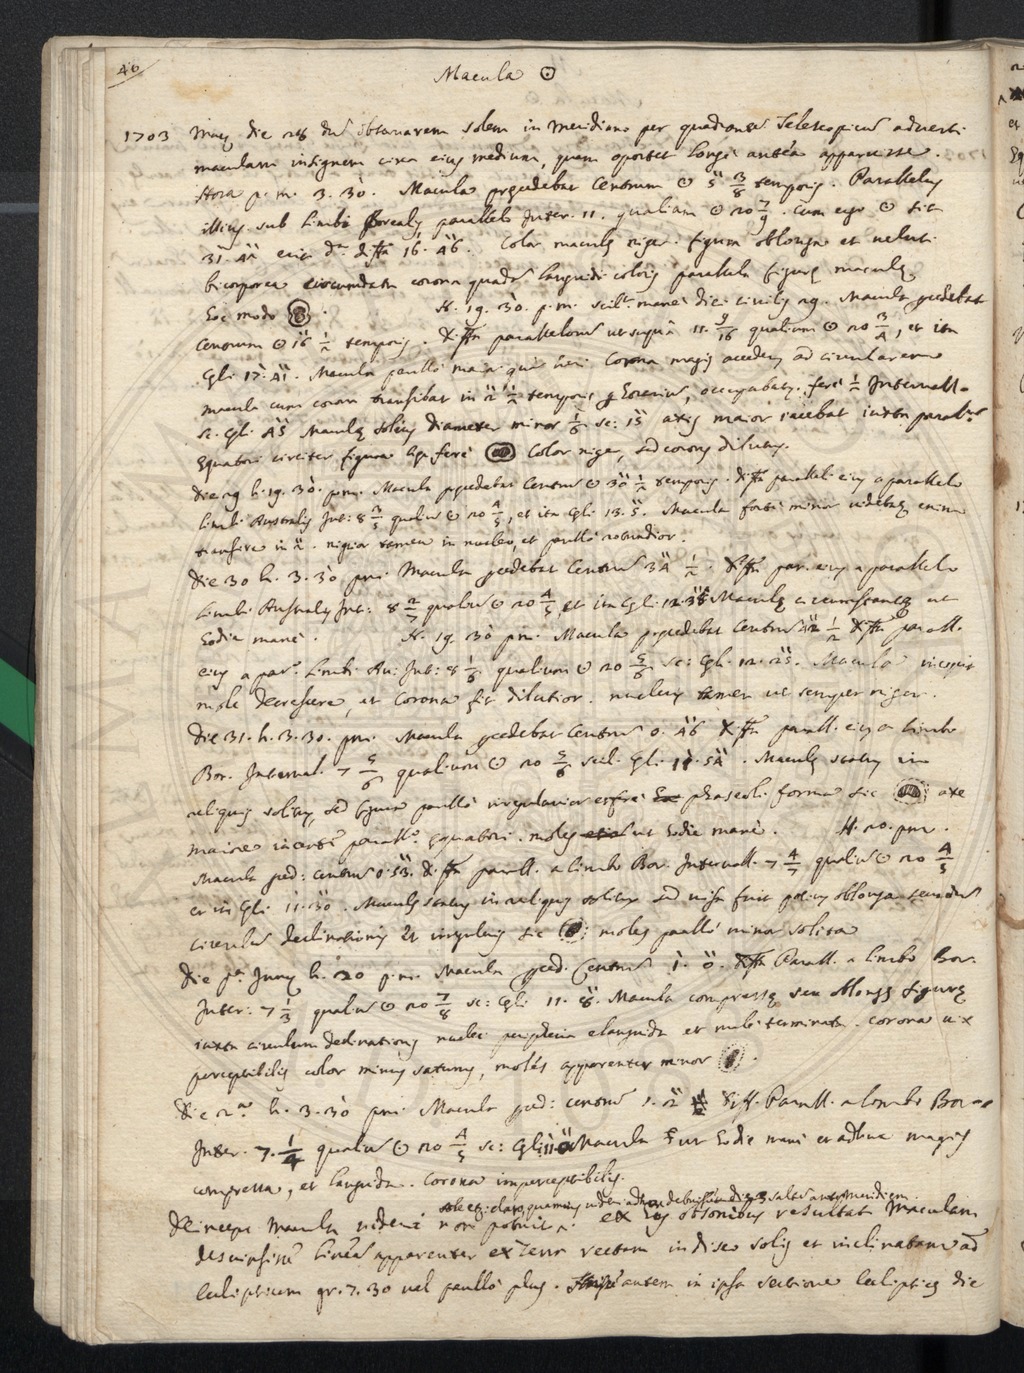 40
Macula ☉
1703 Maij die 28 dum observarem Solem in Meridiano per quadrantis Telescopium adverti
maculam insignem circa eius medium, quam oportet longè antea apparuisse.
Hora p. m. 3. 30. Macula precedebat Centrum ☉ 5" 3/8 temporis. Parallelus
illius sub limbi Borealis parallelo Inter. 11. qualium ☉ 20 7/9. cum ergo ☉ sit
31. 44 erit d.ª diffª 16. 46. Color maculę niger. figura oblonga et veluti
bicorporea circumdata corona quadam languidi coloris parallela figurę maculę
hoc modo . H. 19. 30. p. m. scil. manè diei civilis 29. Macula pcedebat
Centrum ☉ 16 1/2 temporis. Diffª parallelorum ut supra 11. 9/16 qualium ☉ 20 3/4, et ita
Gli. 17. 41. Macula paullò maior quàm heri Corona magis accedens ad circularem
macula cum corona transibat in 2" 1/2 temporis occupabatq. ferè 1/2 Intervall.
sc. Gli 45 Maculę solius diameter minor 1/6 sc: 15 axis maior iacebat iuxta parall.
Equatori circiter figura ferè color niger, sed coronę dilutus.
Die 29 h. 19. 30. p.m. Macula pcedebat Centrum ☉ 30 1/2 temporis. diffª parallel. eius a parallelo
limbi Australis Int: 8 2/5 qualium ☉ 20 4/5, et ita Gli. 13. 5. Macula fortè minor videbatur enim
transire in 2". nigrior tamen in nucleo, et paullò rotundior.
Die 30 h. 3. 30 p.m. Macula pcedebat Centrum 34 1/2. Diffª par. eius a parallelo
Limbi Australis Int: 8 2/7 qualium ☉ 20 4/5, et ita Gli. 12. 38 Maculę circumstantię ut
hodie manè. H. 19. 30 p.m. Macula precedebat Centrum 42 1/2 Diffª parall.
eius a par.º Limbi Au: Int: 8 1/6 qualium ☉ 20 5/6 sc: Gli. 12. 25. Macula incepit
mole decrescere, et Corona fit dilutior. nucleus tamen ut semper niger.
Die 31. h. 3. 30. p.m. Macula pcedebat Centrum 0. 46 Diffª parall. eius a limbo
Bor. Interval. 7 5/6 qualium ☉ 20 5/6 scil. Gli. 11. 54. Maculę status in
reliquis solitus, sed figura paullò irregularior phaseoli forma sic axe
maiore parall.º Equatori. moles ut hodie manè. H. 20. p.m.
Macula pced: centrum 0. 53. Diffª parall. a limbo Bor. Intervall. 7 4/7 qualium ☉ 20 4/5
et ita Gli 11. 30. Maculę status in reliquis solitus sed visa fuit potius oblonga secundum
circulum declinationis et irregularis sic moles paullò minor solita
Die pª Junij h. 20 p.m. Macula pced. Centrum 1. 0. Diffª Parall. a limbo Bor.
Inter: 7 1/3 qualium ☉ 20 7/8 sc: Gli 11. 8. Macula compressę seu oblongę figurę
iuxta circulum declinationis nuclei peripheria elanguida et malè terminata. corona vix
perceptibilis color minus saturus, moles apparenter minor .
Die 2ª h. 3. 30 p.m. Macula pced: centrum 1. 2 Diff. Parall. a limbo Bor.
Inter. 7. 1/4 qualium ☉ 20 4/5 sc: Gli. 11. 0 Macula ut hodie manè et adhuc magis
compressa, et languida. Corona imperceptibilis.
solo clarus quamvis videri adhuc debuisset die 3 saltem ante meridiem
Deinceps Macula videri non potuit ^. ex his observationibus resultat Maculam
descripsisse lineam apparenter rectam in disco solis et inclinatam ad
Eclipticam gr. 7. 30 vel paullò plus. fuisse autem in ipsa sectione Eclipticę die